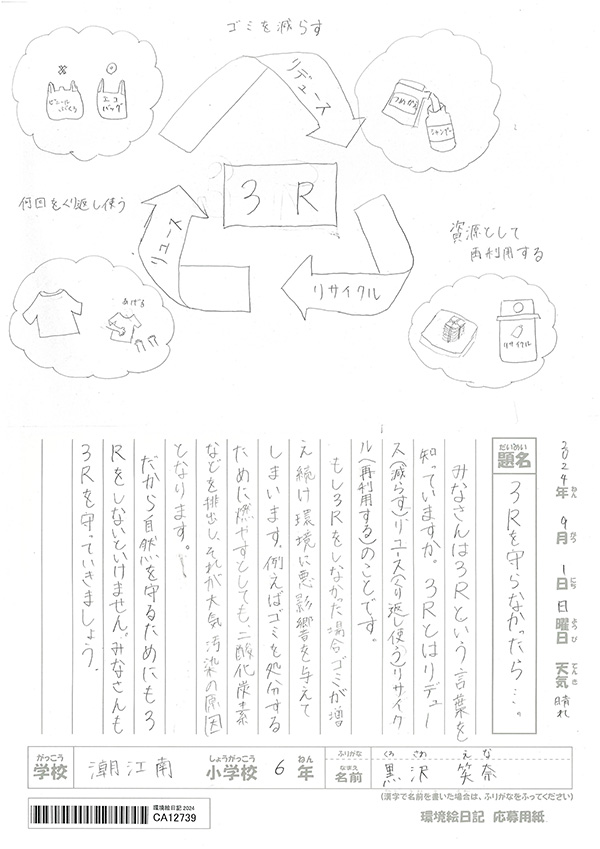 ゴミを減らす
リデュース
ビニールぶくろ
エコバッグ
つめかえ
シャンプー
何回もくり返し使う
リユース
3R
資源として
再利用する
リサイクル
あげる
リサイクル
2024年 9月 1日 日曜日 天気 晴れ
ねん がつ にち ようび てんき
だいめい
題名 3Rを守らなかったら…。
みなさんは3Rという言葉を
知っていますか。3Rとはリデュー
ス(減らす)リユース(くり返し使う)リサイク
ル(再利用する)のことです。
もし3Rをしなかった場合、ゴミが増
え続け環境に悪影響を与えて
しまいます。例えばゴミを処分する
ために燃やすとしても、二酸化炭素
などを排出し、それが大気汚染の原因
となります。
だから自然を守るためにも3
Rをしないといけません。みなさんも
3Rを守っていきましょう。
がっこう しょうがっこう ねん
学校 潮江南 小学校 6年
ふりがな くろ さわ え な
なまえ
名前 黒沢 笑奈
(漢字で名前を書いた場合は、ふりがなをふってください)
環境絵日記2024
CA12739
環境絵日記 応募用紙